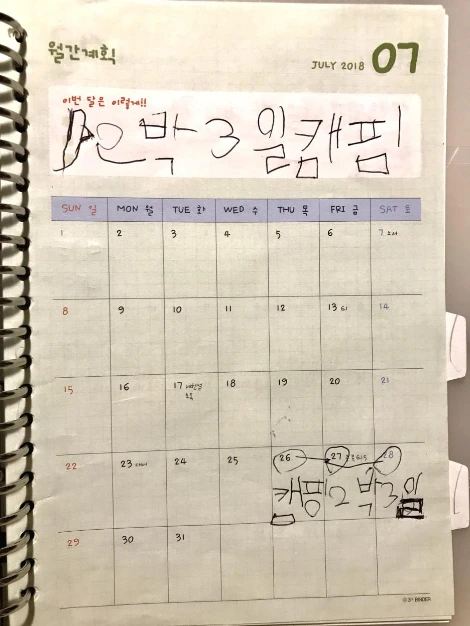 월간계획
JULY 2018 07
이번 달은 이렇게!!
박 3 일 캠핑
SUN 일 MON 월 TUE 화 WED 수 THU 목 FRI 금 SAT 토
1 2 3 4 5 6 7 소서
8 9 10 11 12 13 14
15 16 17 제헌절 초복 18 19 20 21
22 23 대서 24 25 26 27 중복 28
캠핑 2 박 3 일
29 30 31
3P BINDER